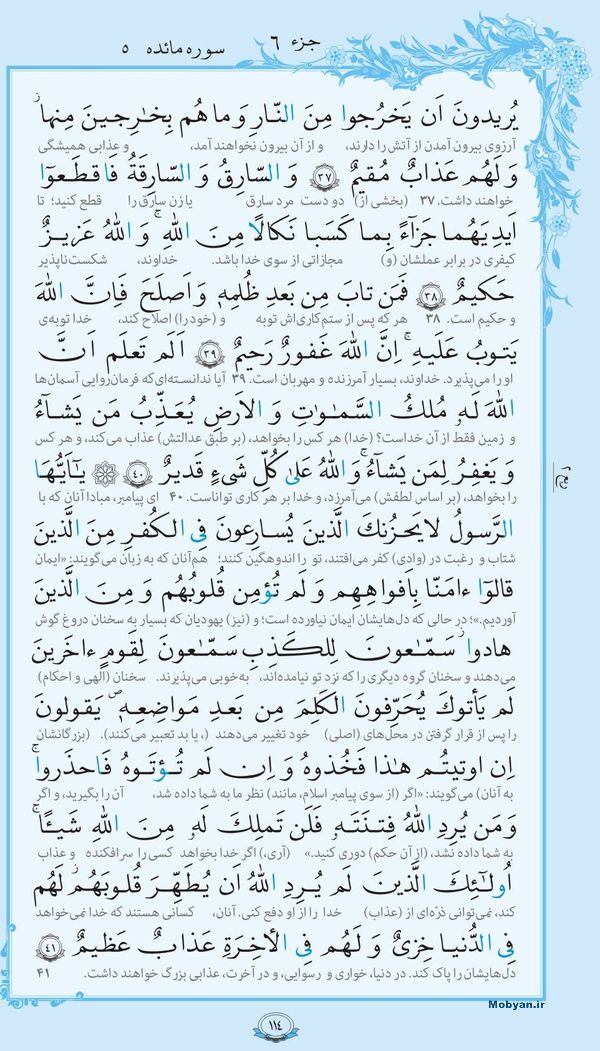 جزء ۶
سوره مائده ۵
یُریدونَ اَن یَخرُجوا مِنَ النّارِ وَ ما هُم بِخٰرِجینَ مِنها ۖ
آرزوی بیرون آمدن از آتش را دارند، و از آن بیرون نخواهند آمد، و عذابی همیشگی
وَ لَهُم عَذابٌ مُقیمٌ ﴿۳۷﴾ وَ السّارِقُ وَ السّارِقَةُ فَاقطَعوٓا
خواهند داشت. ۳۷ (بخشی از) دو دست مرد سارق یا زن سارق را قطع کنید؛ تا
اَیدِیَهُما جَزآءً بِما کَسَبا نَکالًا مِنَ اللهِ ۗ وَ اللهُ عَزیزٌ
کیفری در برابر عملشان (و) مجازاتی از سوی خدا باشد. خداوند، شکست‌ناپذیر
حَکیمٌ ﴿۳۸﴾ فَمَن تابَ مِن بَعدِ ظُلمِهٖ وَ اَصلَحَ فَاِنَّ اللهَ
و حکیم است. ۳۸ هر که پس از ستم‌کاری‌اش توبه و (خود را) اصلاح کند، خدا توبه‌ی
یَتوبُ عَلَیهِ ۗ اِنَّ اللهَ غَفورٌ رَحیمٌ ﴿۳۹﴾ اَلَم تَعلَم اَنَّ
او را می‌پذیرد. خداوند، بسیار آمرزنده و مهربان است. ۳۹ آیا ندانسته‌ای‌که فرمان‌روایی آسمان‌ها
اللهَ لَهٗ مُلکُ السَّمٰوٰتِ وَ الاَرضِ یُعَذِّبُ مَن یَشآءُ
و زمین فقط از آن خداست؟ (خدا) هر کس را بخواهد، (بر طبق عدالتش) عذاب می‌کند، و هر کس
وَ یَغفِرُ لِمَن یَشآءُ ۗ وَ اللهُ عَلیٰ کُلِّ شَیءٍ قَدیرٌ ﴿۴۰﴾ یٰٓاَیُّهَا
را بخواهد، (بر اساس لطفش) می‌آمرزد، و خدا بر هر کاری تواناست. ۴۰ ای پیامبر، مبادا آنان که با
الرَّسولُ لا یَحزُنکَ الَّذینَ یُسارِعونَ فِی الکُفرِ مِنَ الَّذینَ
شتاب و رغبت در (وادی) کفر می‌افتند، تو را اندوهگین کنند؛ هم‌آنان که به زبان می‌گویند: «ایمان
قالوٓا ءامَنّا بِاَفواهِهِم وَ لَم تُؤمِن قُلوبُهُم وَ مِنَ الَّذینَ
آوردیم.»؛ در حالی که دل‌هایشان ایمان نیاورده است؛ و (نیز) یهودیان که بسیار به سخنان دروغ گوش
هادوا ۛ سَمّٰعونَ لِلکَذِبِ سَمّٰعونَ لِقَومٍ ءاخَرینَ
می‌دهند و سخنان گروه دیگری را که نزد تو نیامده‌اند، به‌خوبی می‌پذیرند. سخنان (الهی و احکام)
لَم یَأتوکَ یُحَرِّفونَ الکَلِمَ مِن بَعدِ مَواضِعِهٖ ۖ یَقولونَ
را پس از قرار گرفتن در محل‌های (اصلی) خود تغییر می‌دهند (، یا بد تعبیر می‌کنند). (بزرگانشان
اِن اوتیتُم هٰذا فَخُذوهُ وَ اِن لَم تُؤتَوهُ فَاحذَروا ۚ
به آنان) می‌گویند: «اگر (از سوی پیامبر اسلام، مانند) نظر ما به شما داده شد، آن را بگیرید، و اگر
وَ مَن یُرِدِ اللهُ فِتنَتَهٗ فَلَن تَملِکَ لَهٗ مِنَ اللهِ شَیئًا ۚ
به شما داده نشد، (از آن حکم) دوری کنید.» (آری،) اگر خدا بخواهد کسی را سرافکنده و عذاب
اُولٰٓئِکَ الَّذینَ لَم یُرِدِ اللهُ اَن یُطَهِّرَ قُلوبَهُم ۚ لَهُم
کند، نمی‌توانی ذرّه‌ای از (عذاب) خدا را از او دفع کنی. آنان، کسانی هستند که خدا نمی‌خواهد
فِی الدُّنیا خِزیٌ وَ لَهُم فِی الأخِرَةِ عَذابٌ عَظیمٌ ﴿۴۱﴾
دل‌هایشان را پاک کند. در دنیا، خواری و رسوایی، و در آخرت، عذابی بزرگ خواهند داشت. ۴۱
۱۱۴
Mobyan.ir